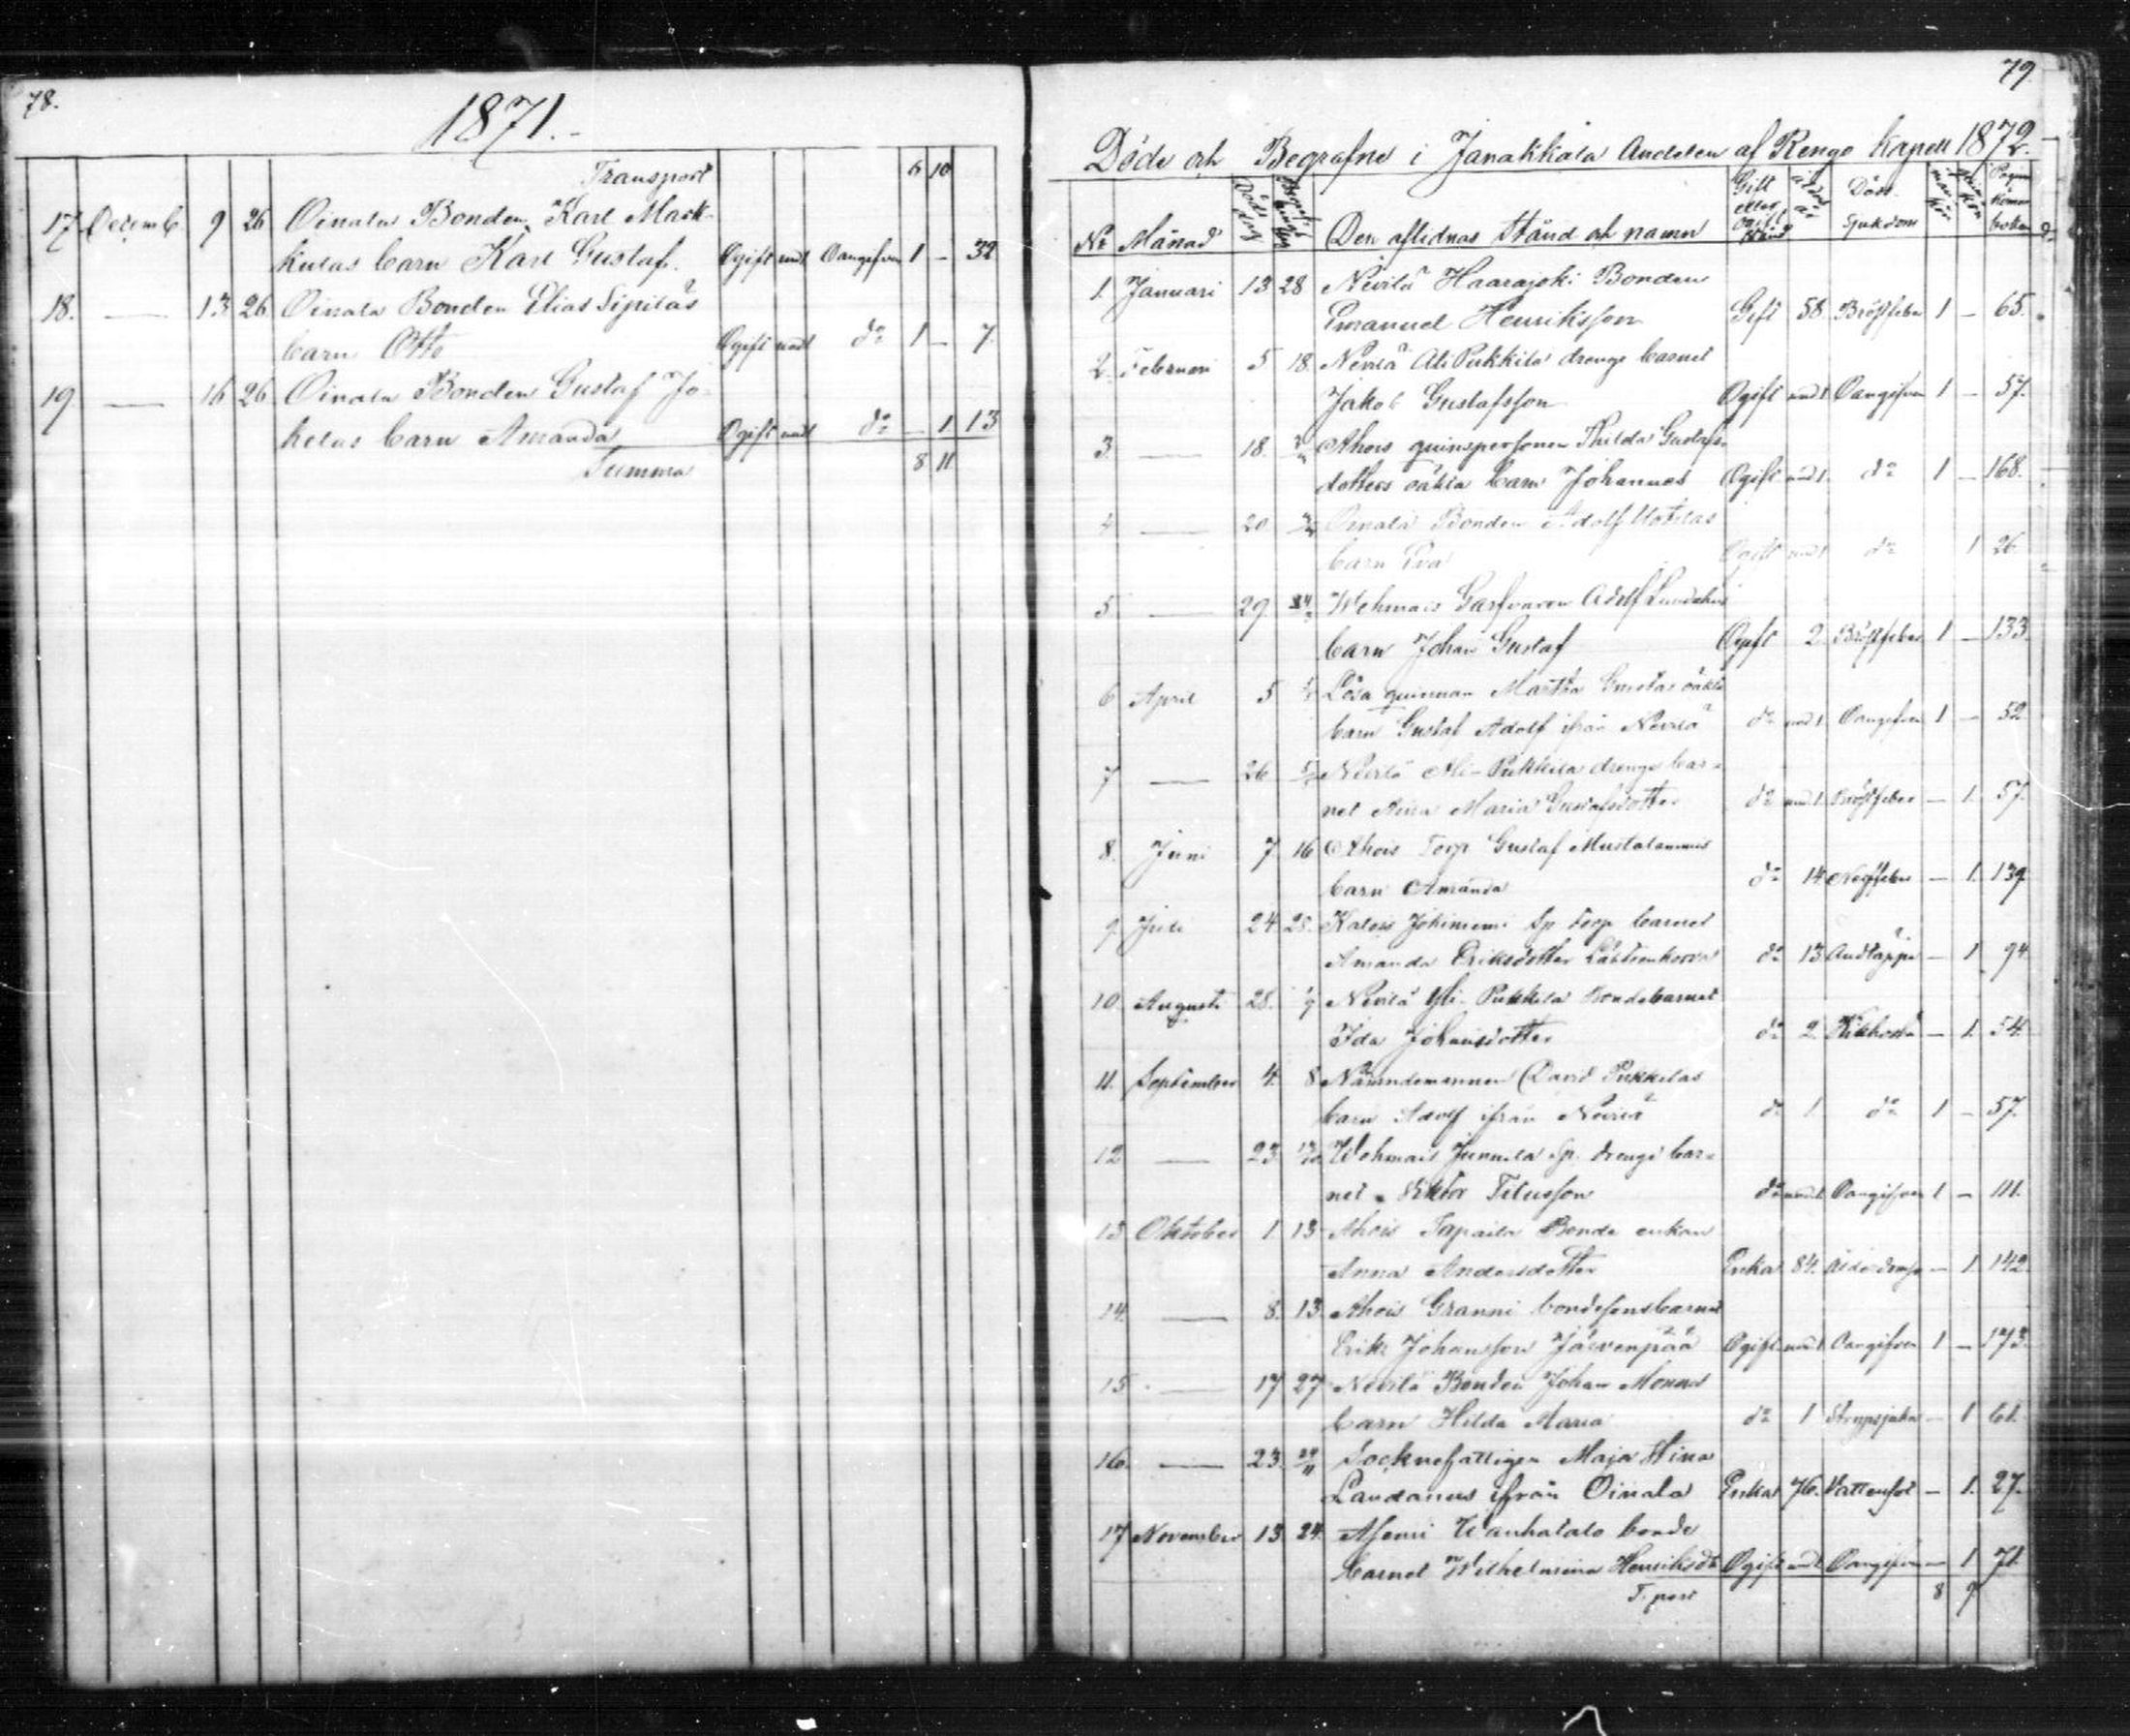 78.
1871.
Transport 6 10
17 Decemb. 9 26 Oinala Bonden Karl Mark-
kulas barn Karl Gustaf. Ogift und 1 Oangifven 1 – 32
18. — 13 26 Oinala Bonden Elias Sipiläs
barn Otto Ogift und 1 do 1 – 7.
19 — 16 26 Oinala Bonden Gustaf Jo-
kelas barn Amanda Ogift und 1 do – 1 13
Summa 8 11.
79
Döde och Begrafne i Janakkala Andelen af Rengo Kapell 1872.
No Månad Döds dag Begrafnings dag Den aflidnas Stånd och namn Gift eller Ogift Ålder år Döds Sjukdom mankön qvinkön Pagina i kommboken
1. Januari 13 28 Nevilä Haarajoki Bonden
Emanuel Henriksson Gift 58 Bröstfeber 1 – 65.
2. Februari 5 18. Nevilä Ali Pukkila drenge barnet
Jakob Gustafsson Ogift und 1 Oangifven 1 – 57.
3. — 18. Ahois quinspersonen Thilda Gustafs-
dotters oäkta barn Johannes Ogift und 1. do 1 – 168.
4 — 20 Oinala Bonden Adolf Uotilas
barn Eva Ogift und 1 do 1 26
5 — 29. Wehmais Garfvaren Adolf
barn Johan Gustaf Ogift 2. Bröstfeber 1 – 133.
6 April 5 Lösa quinnan Martha oäkta
barn Gustaf Adolf ifrån Nevilä do und 1. Oangifven 1 – 52
7 — 26 Nevilä Ali-Pukkila drenge bar-
net Anna Maria Gustafsdotter do und 1. Bröstfeber – 1. 57.
8. Juni 7 16 Ahois Torp Gustaf Mustalammis
barn Amanda do 14 – 1. 139.
9. Juli 24 28. Kalois Johiniemi Sp torp barnet
Amanda Eriksdotter do 13 Andtäppa – 1 94
10. Augusti 28. Nevilä Yli-Pukkila bondebarnet
Ida Johansdotter do 2 Kikhosta – 1. 54.
11. September 4. 8 Nämndemannen David Pukkilas
barn Adolf ifrån Nevilä do 1 do 1 – 57.
12 — 23 Wehmais Junnila Sp. drenge bar-
net Viktor Titusson do und 1. Oangifven 1 – 111.
13 Oktober 1. 13 Ahois Tapaila Bonde enkan
Anna Andersdotter Enka 84. – 1. 142
14. — 8. 13. Ahois Granni bondesonsbarnet
Erik Johansson Järvenpää Ogift und 1 Oangifven 1 – 173.
15 — 17 27 Nevilä Bonden Johan
barn Hilda Maria do 1 Strypsjuka – 1 61.
16. — 23. 24/11 Socknefattigen Maja Stina
ifrån Oinala Enka 76. Vattensot – 1. 27.
17 November 13 24. Wanhatalo bonde
barnet Wilhelmina Henriksdr Ogift und 1 Oangifven – 1 71.
T.port 8 9